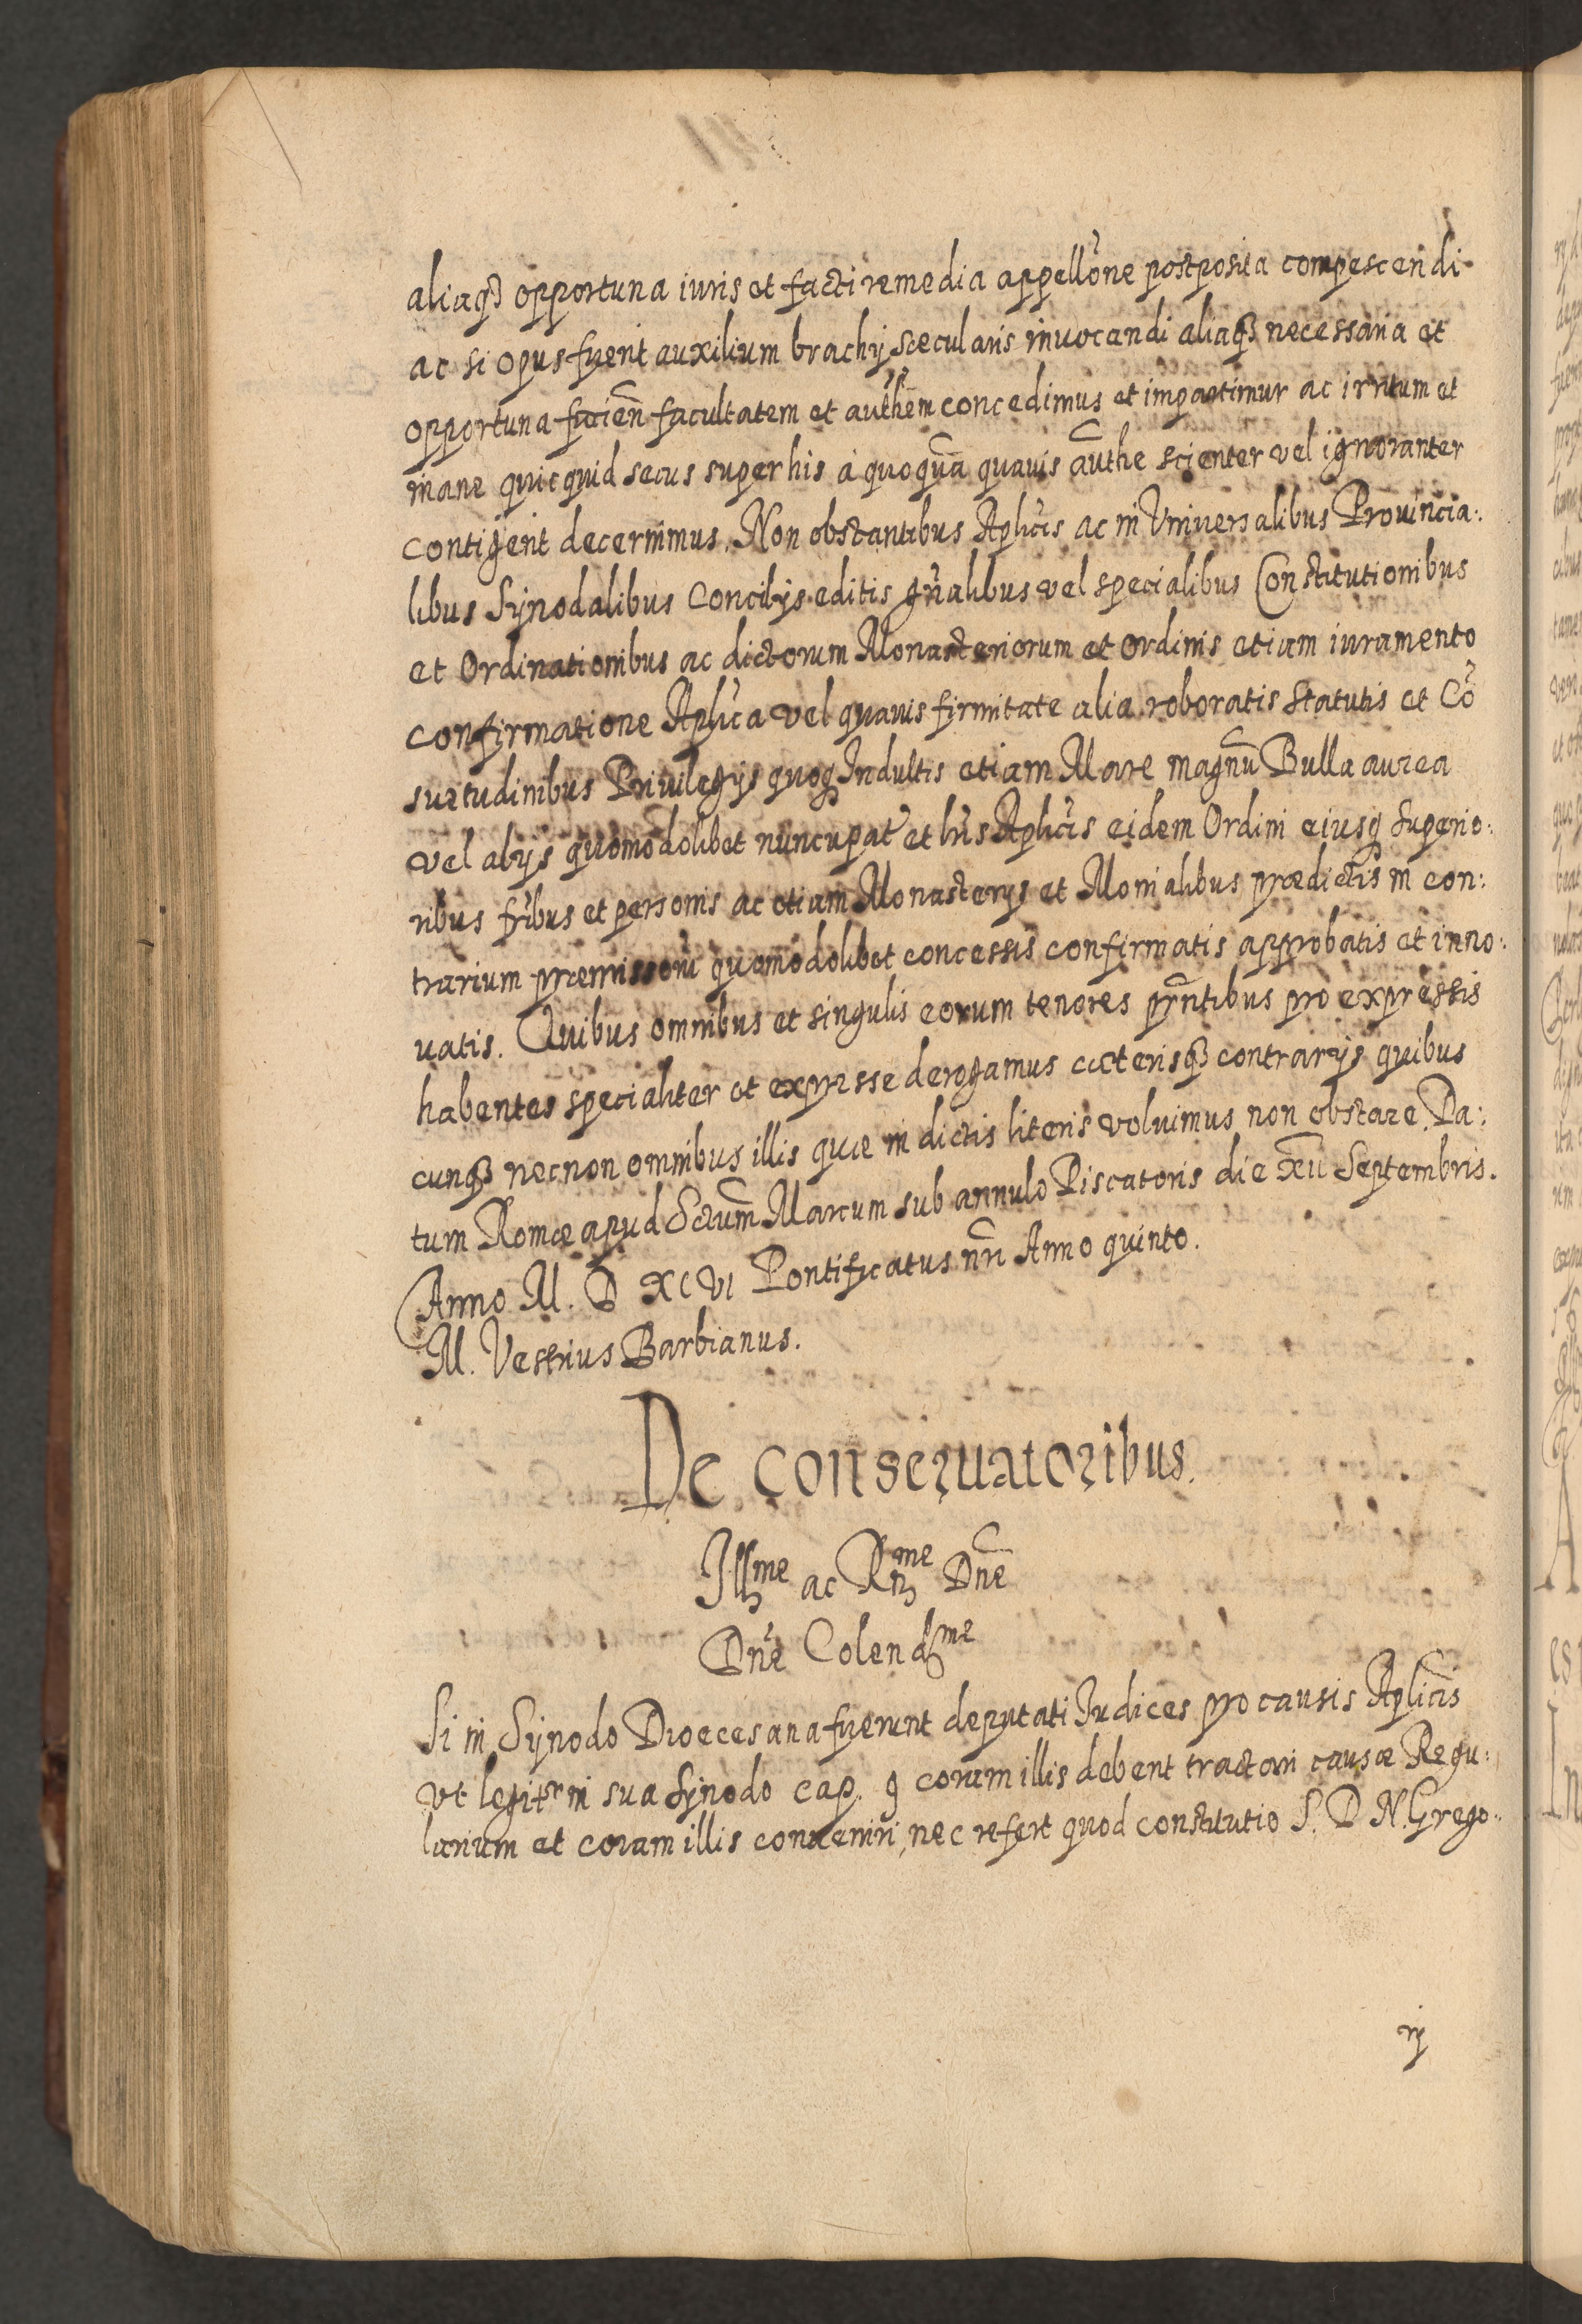 aliaqꝫ opportuna iuris et facti remedia appellõne postposita compescendi
ac si opus fuerit auxilium brachij sæcularis inuocandi aliaqꝫ necessaria et
opportuna facieñ facultatem et authẽm concedimus et impartimur ac irritum et
inane quicquid secus super his à quoquã quauis authẽ scienter vel ignoranter
contigerit decernimus. Non obstantibus Aplicis ac in Vniuersalibus Prouincia:
libus Synodalibus Concilijs editis gñalibus vel specialibus Constitutionibus
et Ordinationibus ac dictorum Monasteriorum et ordinis etiam iuramento
confirmatione Aplica vel quauis firmitate alia roboratis statutis et Cõ
suetudinibus Priuilegijs quoq Indultis etiam Mare magnũ Bulla aurea
vel alijs quomõdolibet nuncupat̃ et lr̃is Aplicis eidem Ordini eiusq Superio:
ribus fribus et personis ac etiam Monasterijs et Monialibus prædictis in con:
trarium præmissorũ quomodolibet concessis confirmatis approbatis et inno:
uatis. Quibus omnibus et singulis eorum tenores pñtibus pro expressis
habentes specialiter et expresse derogamus cæterisqꝫ contrarijs quibus
cunqꝫ necnon omnibus illis quæ in dictis literis voluimus non obstare. Da:
tum Romæ apud Sctum̃ Marcum sub annulo Piscatoris die xii Septembris.
Anno M. D XCVI Pontificatus nr̃i Anno quinto.
M. Vestrius Barbianus.
De conseruatoribus.
Illme ac Rme Dñe
Dñe Colendme
Si in Synodo Diœcesana fuerint deputati Iudices pro causis Aplicis
vt legitr in sua Synodo cap. 9 coram illis debent tractari causæ Regu:
larium et coram illis conueniri, nec refert quod constitutio S. D. N. Grego:
rij